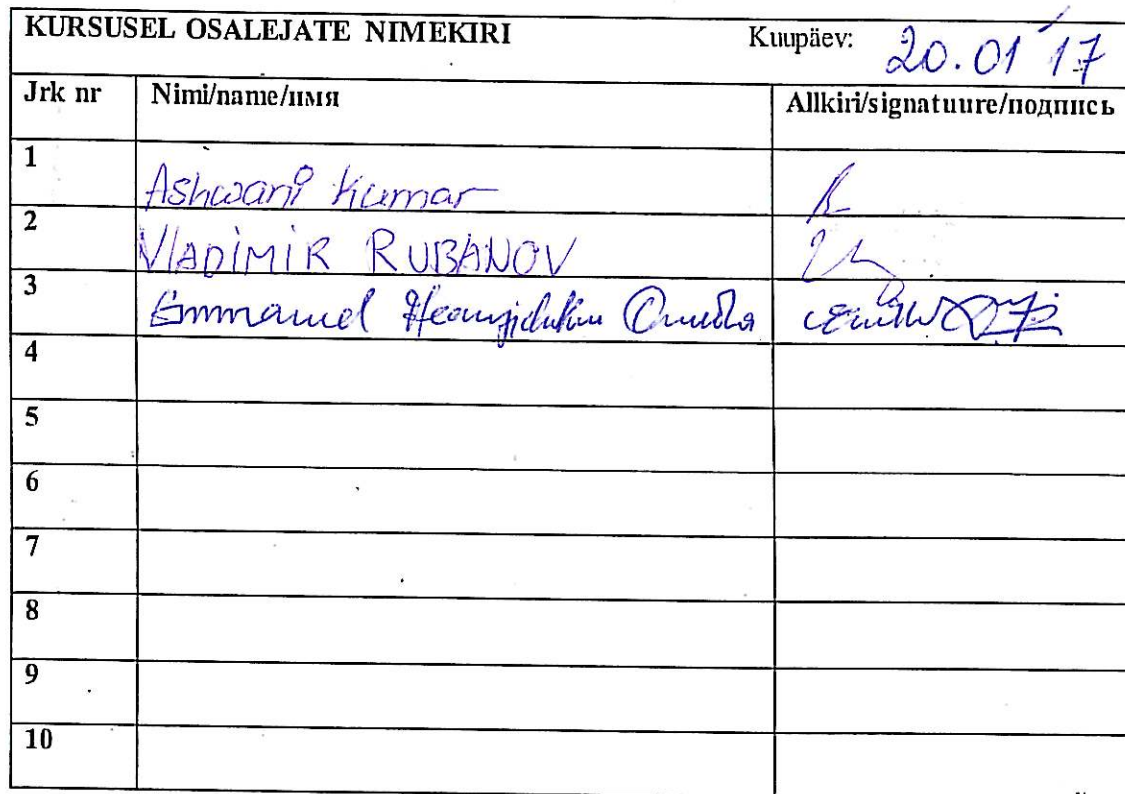 KURSUSEL OSALEJATE NIMEKIRI Kuupäev: 20.01'17
Jrk nr Nimi/name/имя Allkiri/signatuure/подпись
1 Ashwani Kumar
2 VLADIMIR RUBANOV
3 Emmanuel
4
5
6
7
8
9
10